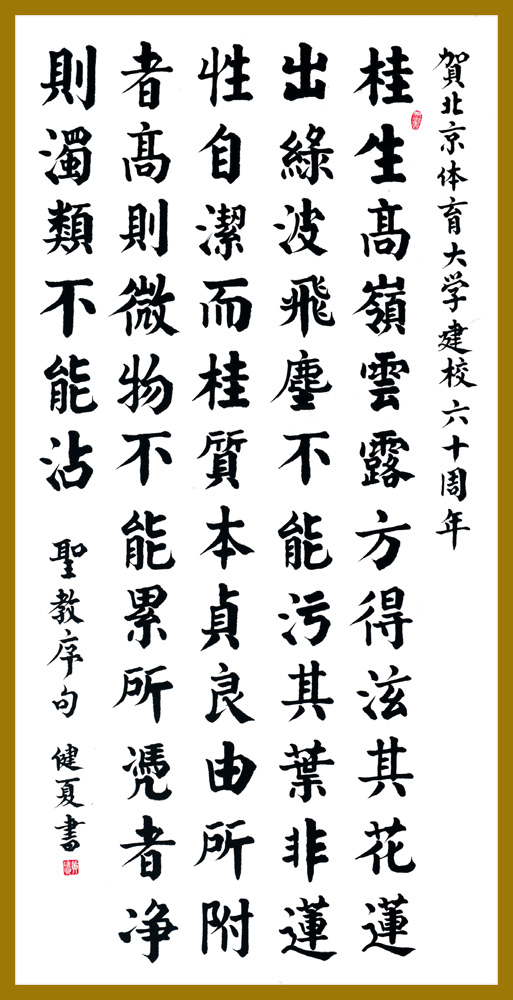 賀北京体育大学建校六十周年
桂生髙嶺雲露方得泫其花蓮
出綠波飛塵不能污其葉非蓮
性自潔而桂質本貞良由所附
者髙則微物不能累所凴者净
則濁類不能沾
聖教序句 健夏書